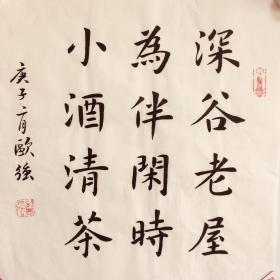 深谷老屋
為伴閑時
小酒清茶
庚子二月歐強